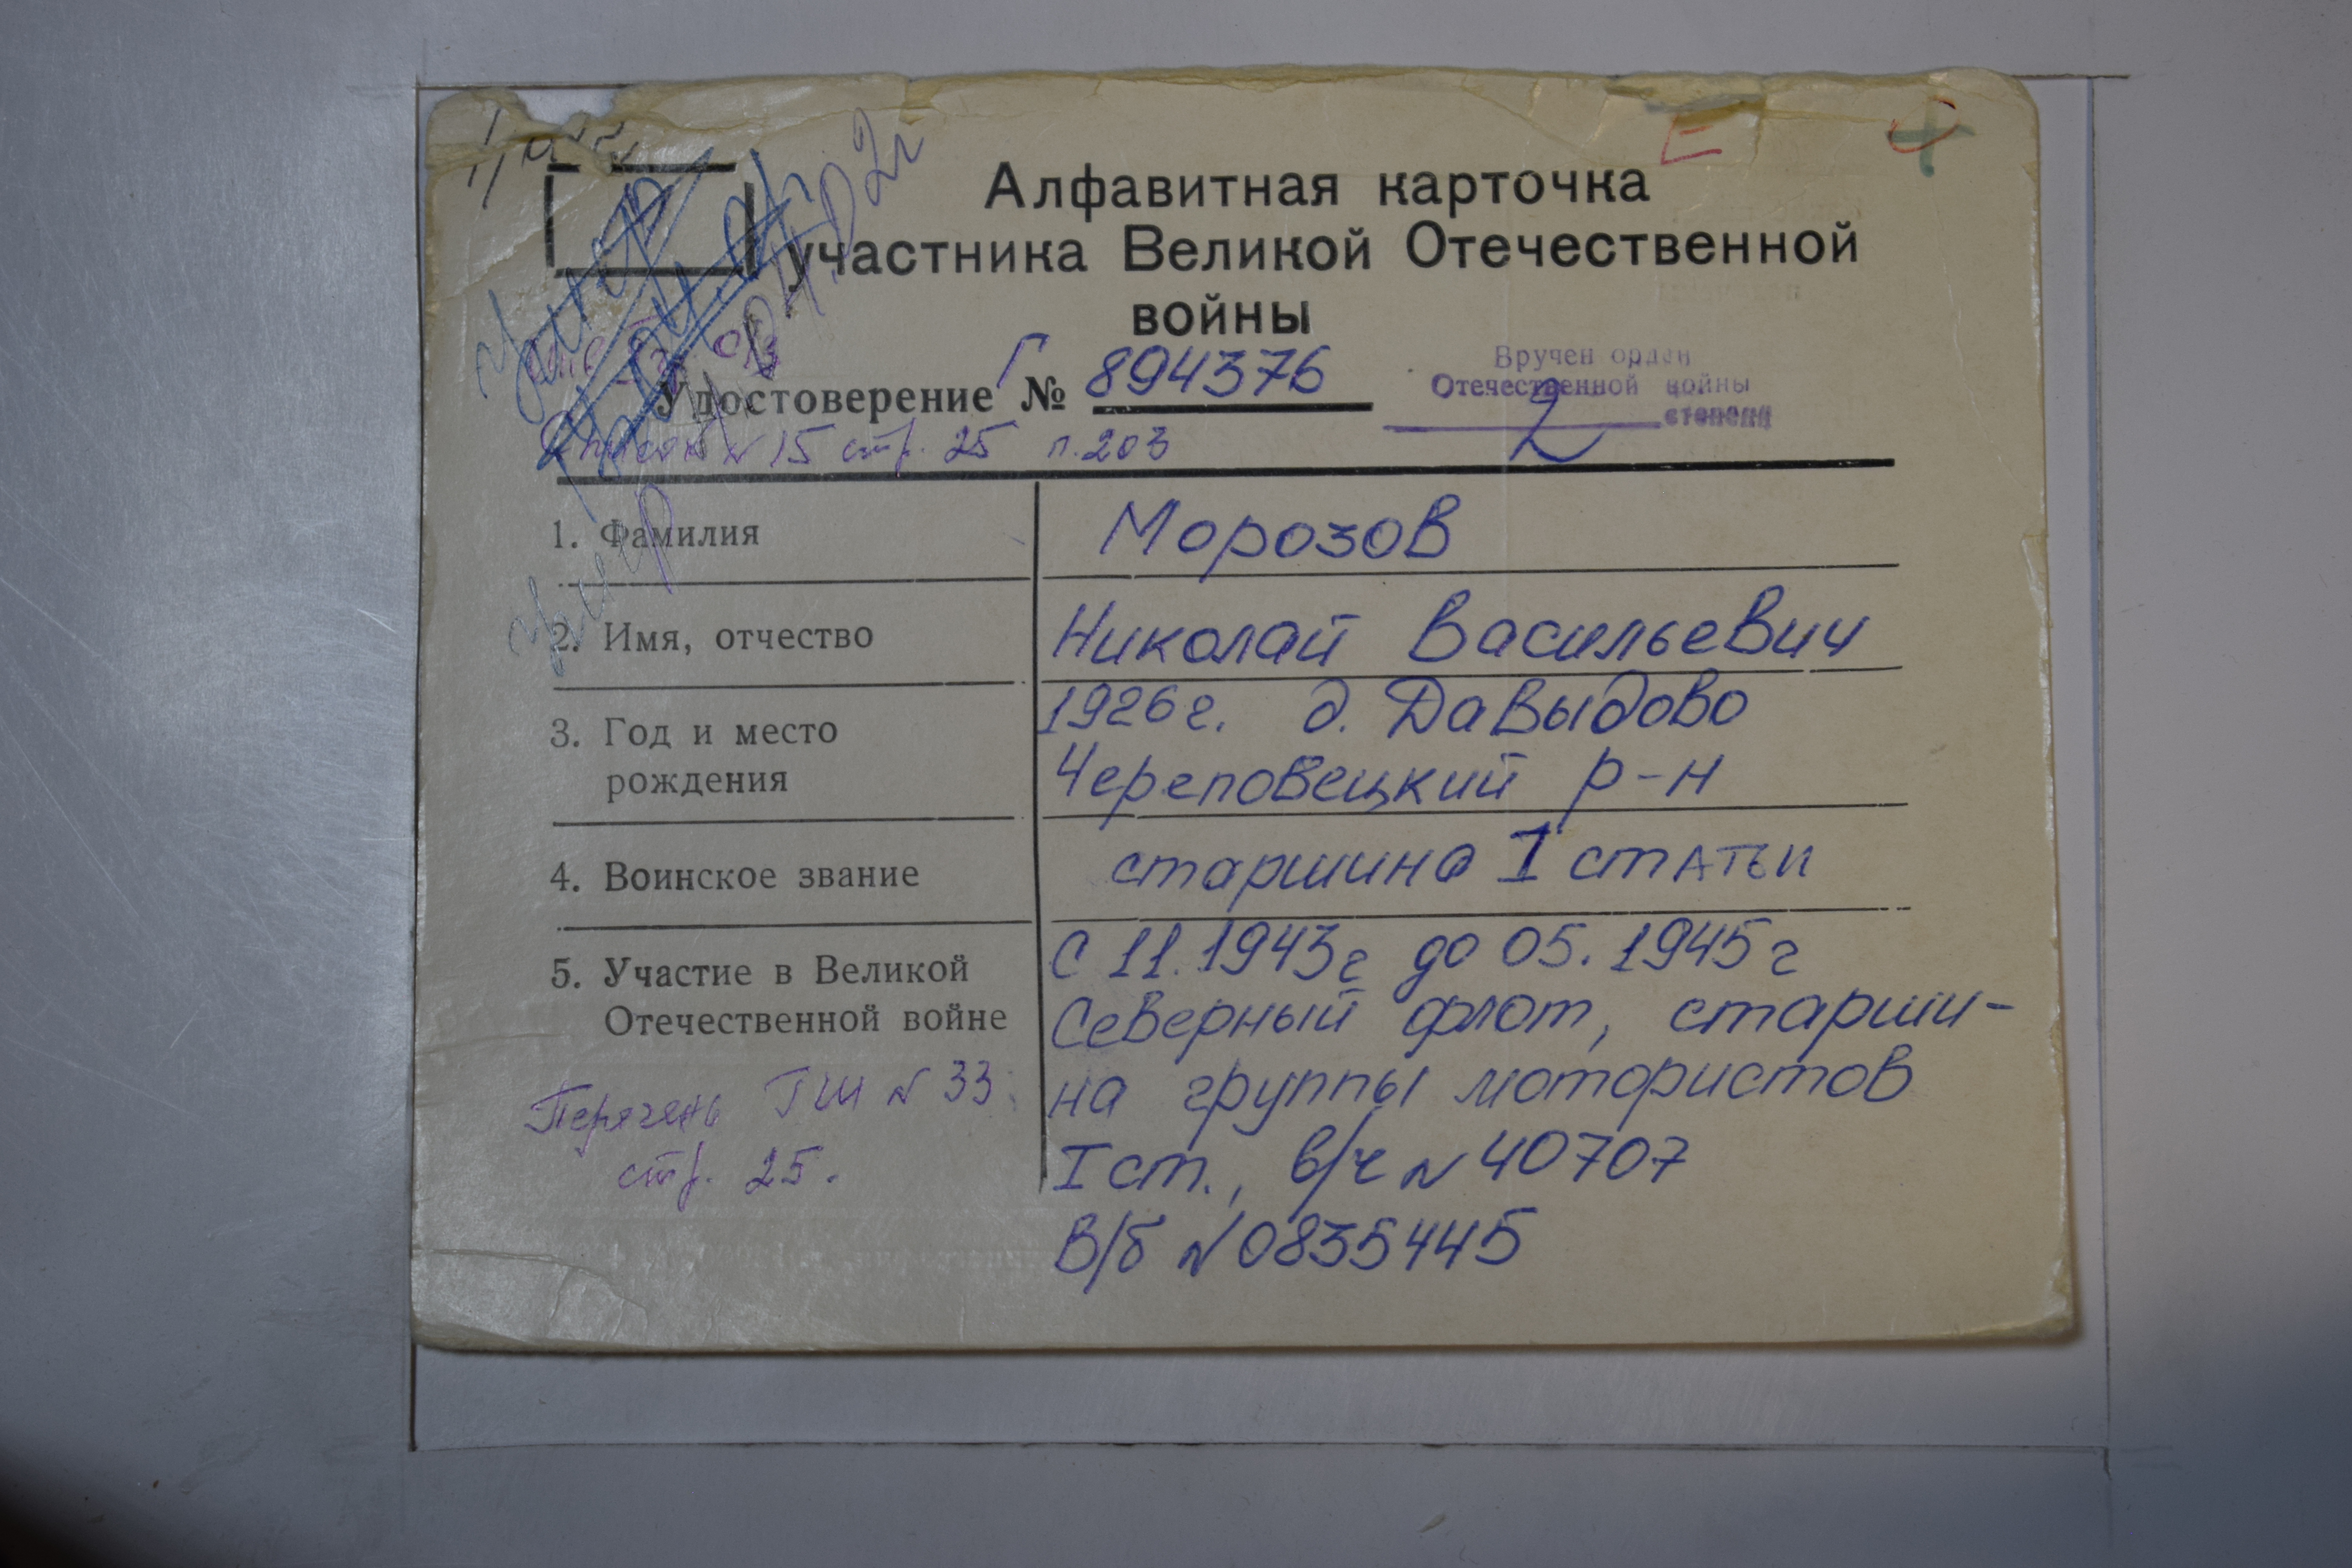 Алфавитная карточка
участника Великой Отечественной
войны
Удостоверение Г № 894376
Вручен орден
Отечественной войны
2 степени
Список № 15 стр. 25 п. 203
1. Фамилия
Морозов
умер
2. Имя, отчество
Николай Васильевич
3. Год и место
рождения
1926 г. д. Давыдово
Череповецкий р-н
4. Воинское звание
старшина I статьи
5. Участие в Великой
Отечественной войне
с 11.1943г до 05.1945г
Северный флот, старши-
на группы мотористов
I ст., в/ч № 40707
В/б № 0835445
Перечень ГШ № 33
стр. 25.